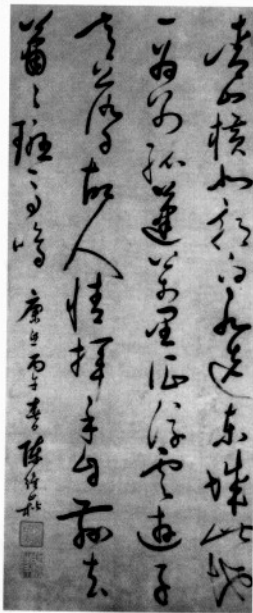 青山橫北郭白水遶東城此地
一為別孤蓬萬里征浮雲遊子
意落日故人情揮手自茲去
蕭〻班馬鳴 康熙丙午春日陳維崧